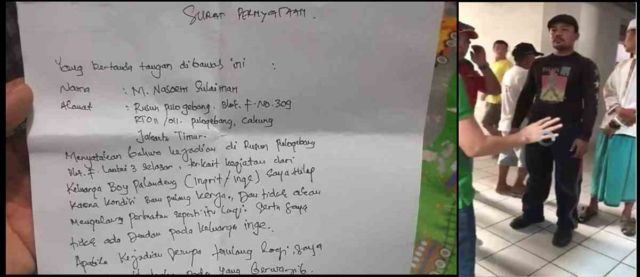 SURAT PERNYATAAN.
Yang bertanda tangan dibawah ini :
Nama : M. Nasoem Sulaiman
Alamat : Rusun pulogebang. Blok. F. No. 309
RT011 /011. pulogebang, Cakung
Jakarta Timur.
Menyatakan bahwa kejadian di Rusun Pulogebang
Blok. F. Lantai 3 selasar, terkait kegiatan dari
Keluarga Boy Palaudeng (Ingrit / Inge) saya khilap
Karna kondisi Baru pulang kerja, Dan tidak akan
Mengulangi perbuatan seperti itu lagi. Serta saya
tidak ada Dendam pada keluarga inge.
Apabila kejadian serupa terulang lagi saya
pada yang Berwajib.